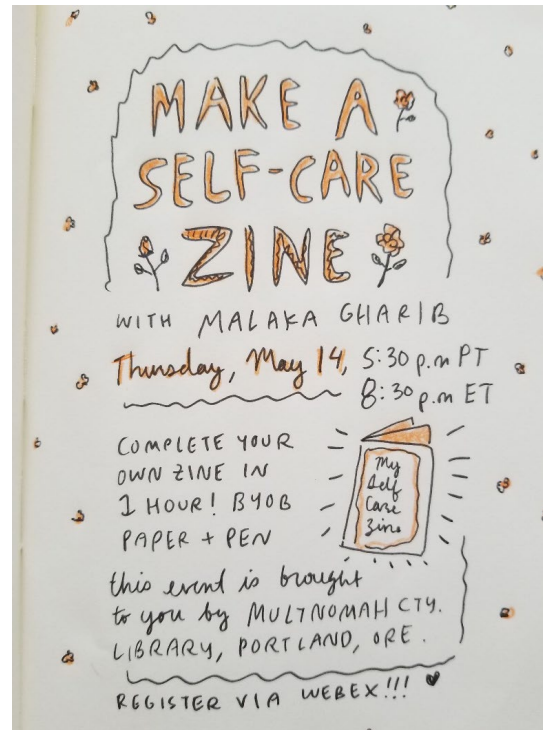 MAKE A
SELF-CARE
ZINE
WITH MALAKA GHARIB
Thursday, May 14, 5:30 p.m PT
8:30 p.m ET
COMPLETE YOUR
OWN ZINE IN
1 HOUR! BYOB
PAPER + PEN
My
Self
Care
Zine
this event is brought
to you by MULTNOMAH CTY.
LIBRARY, PORTLAND, ORE.
REGISTER VIA WEBEX!!!